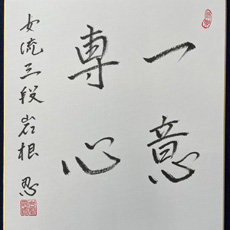 一意
専心
女流三段岩根忍